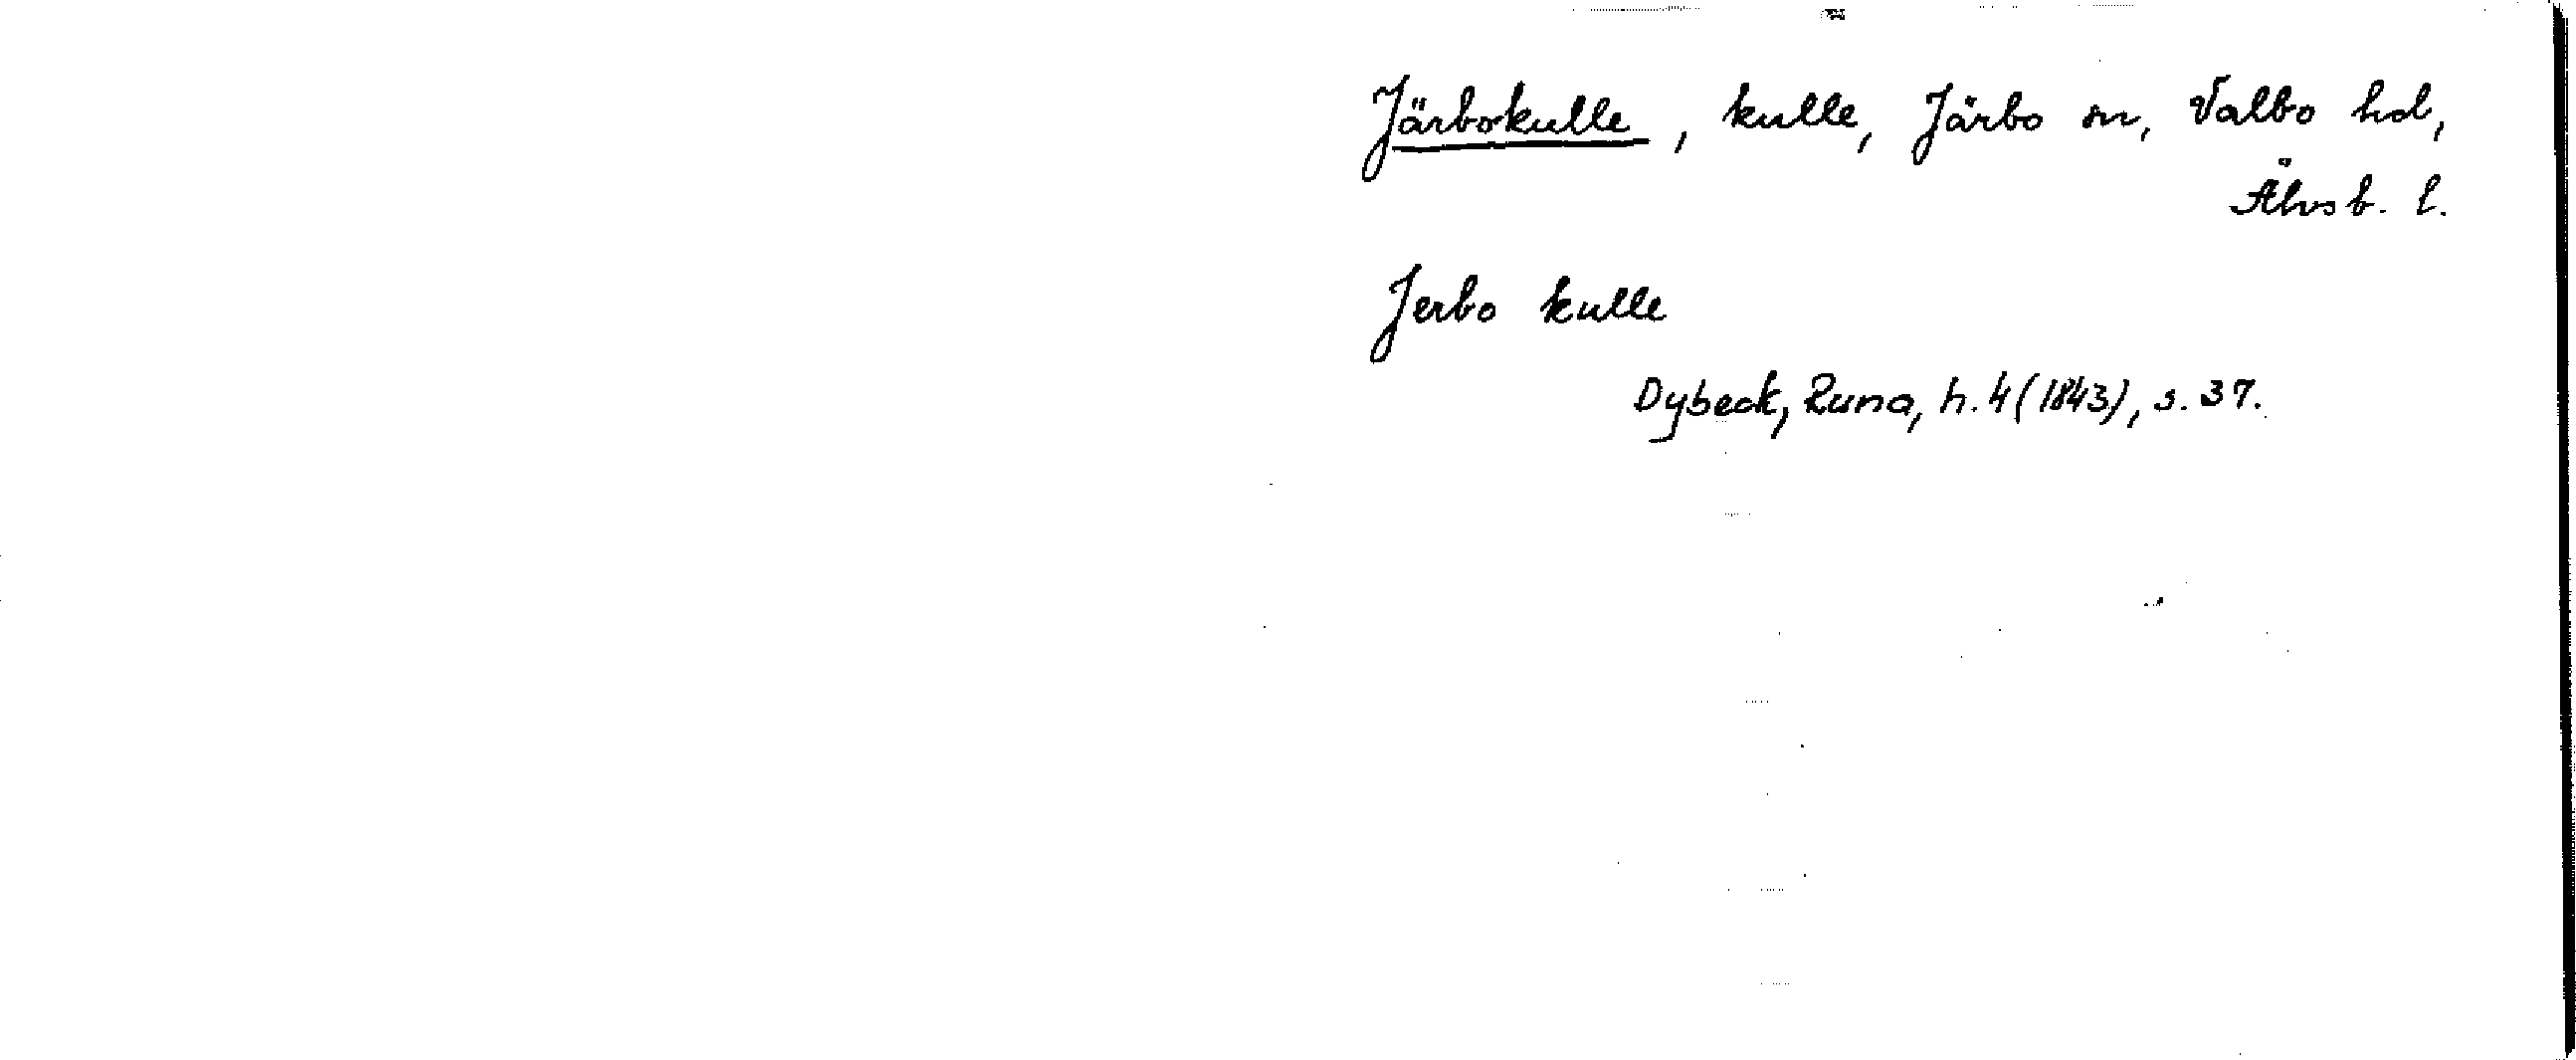 Järbokulle, kulle, Järbo sn, Valbo hd,
Älvsb. l.
Jerbo kulle
Dybeck, Runa, h. 4 (1843), s. 37.